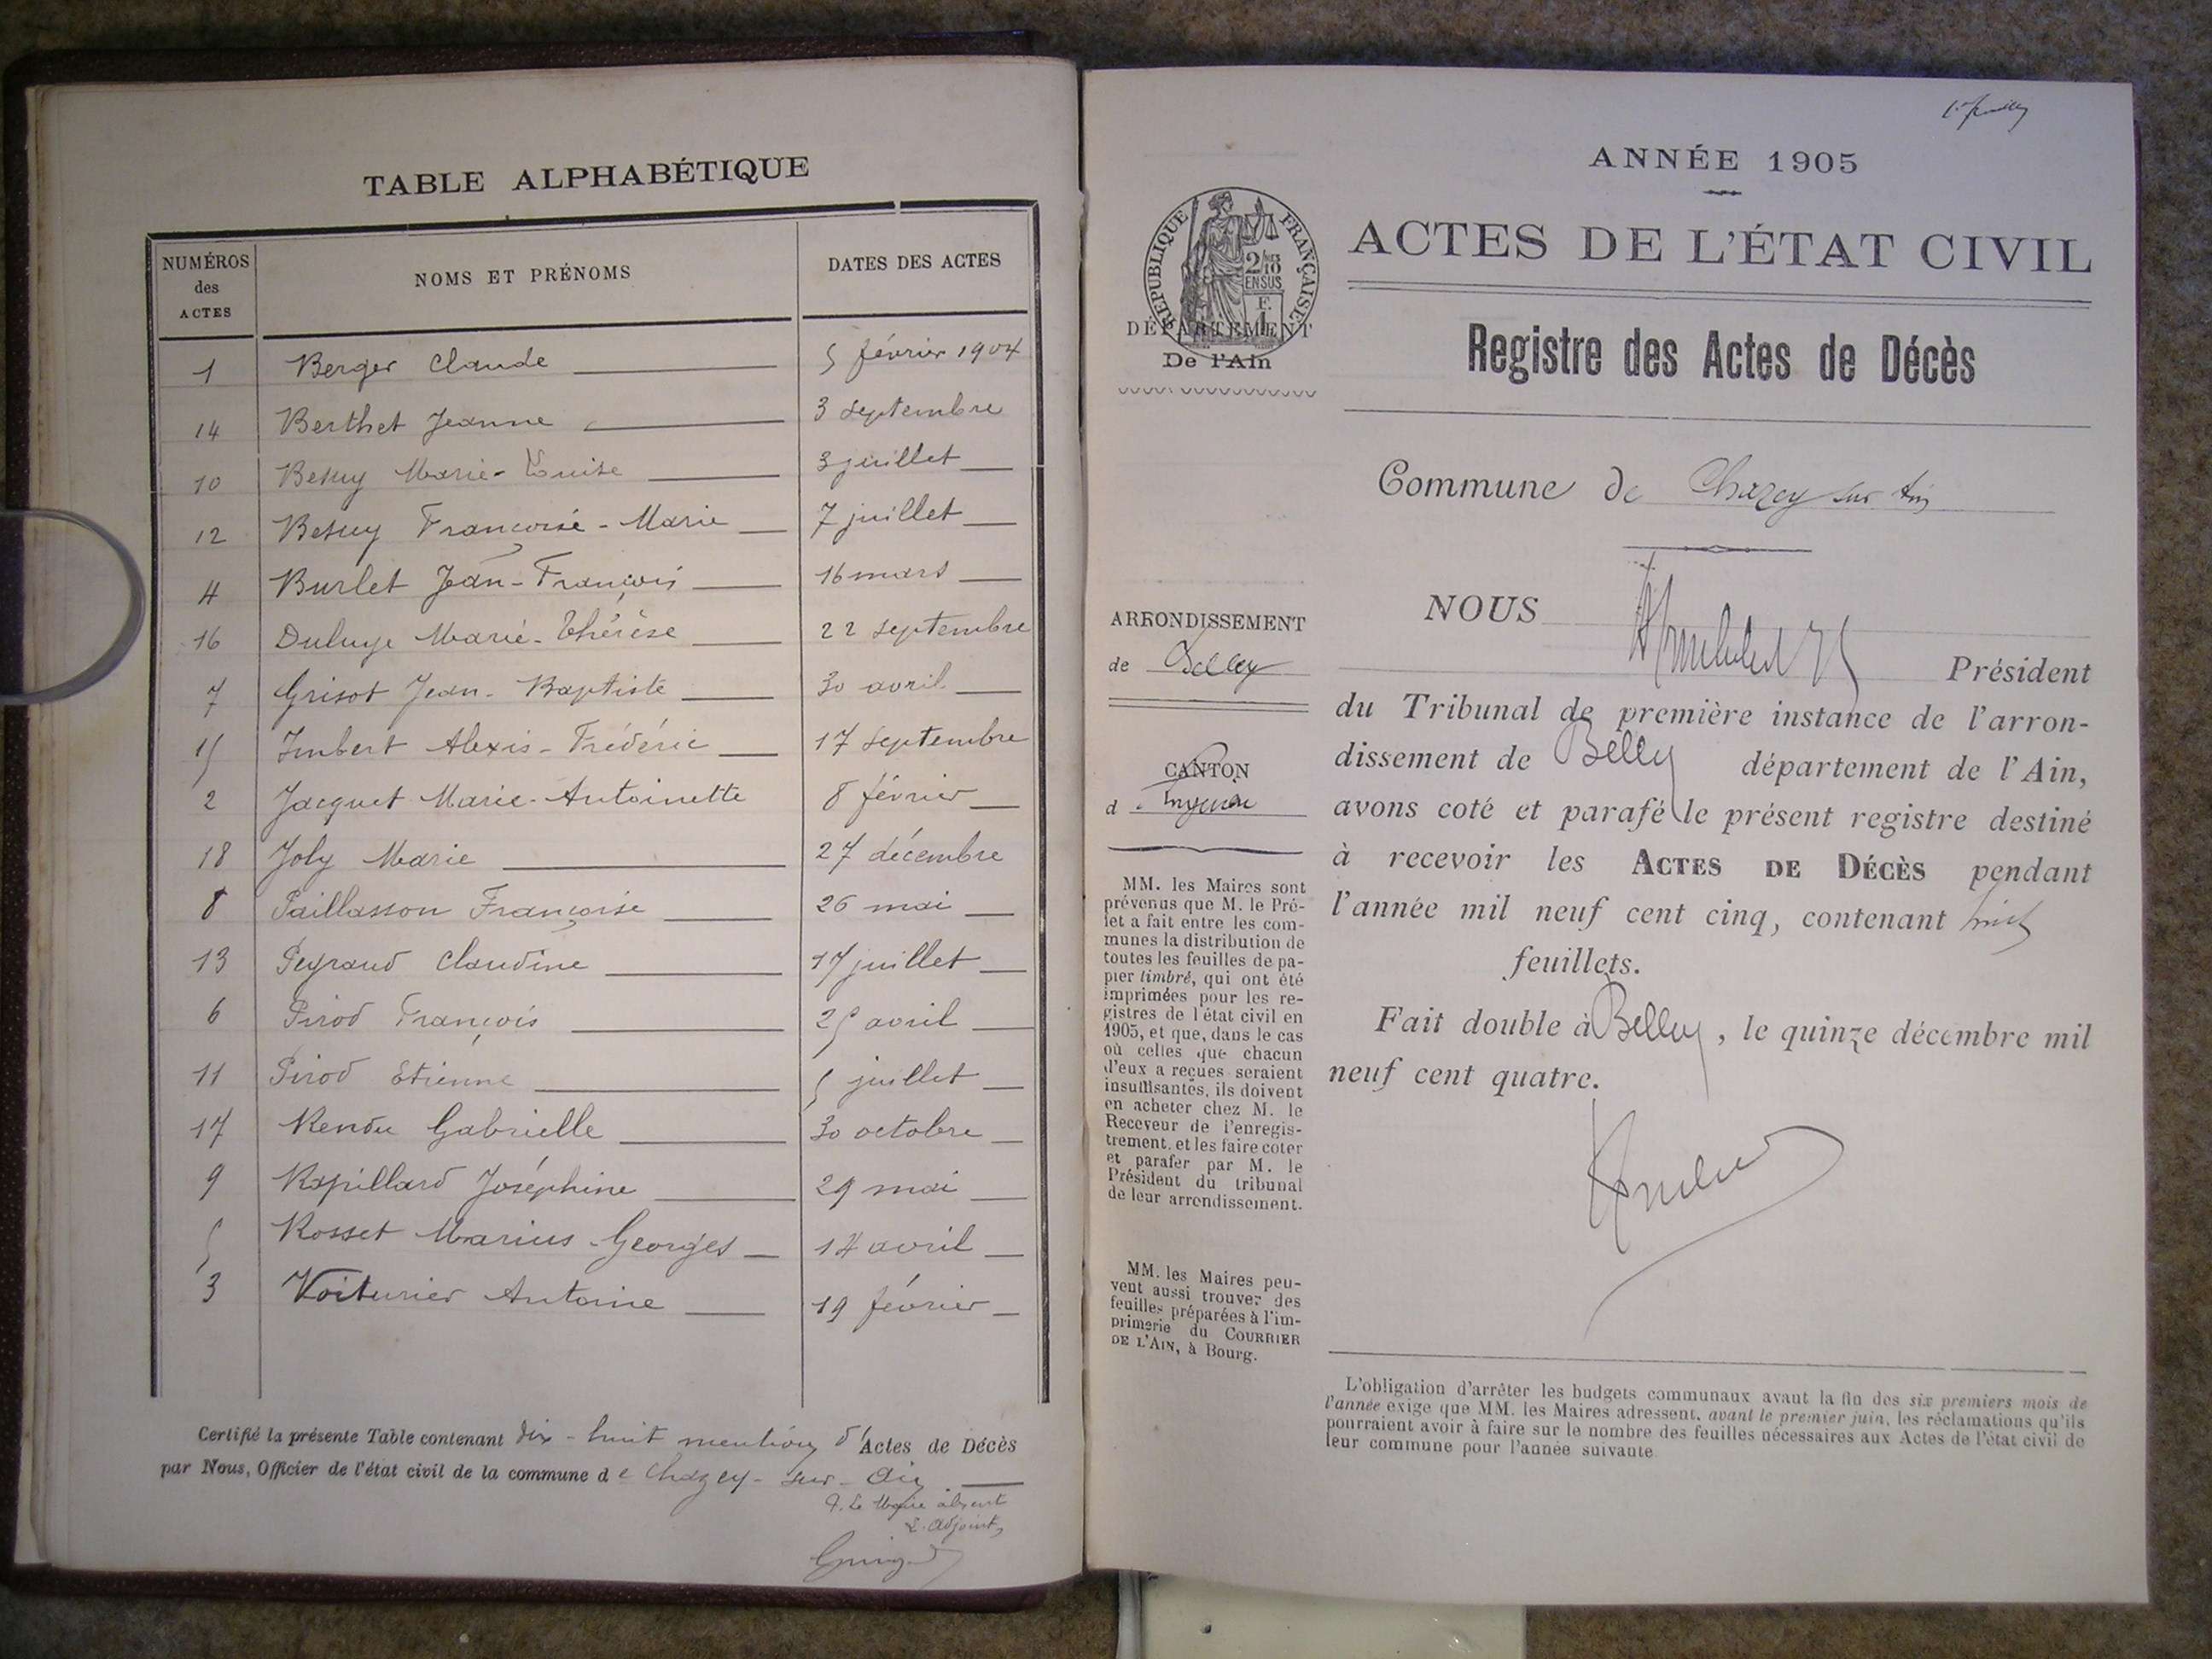 TABLE ALPHABÉTIQUE
NUMÉROS des ACTES NOMS ET PRÉNOMS DATES DES ACTES
1 Berger Claude 5 février 1904
14 Berthet Jeanne 3 septembre
10 Marie-Louise 3 juillet
12 Françoise-Marie 7 juillet
4 Burlet Jean-François 16 mars
16 Marie-Thérèse 22 septembre
7 Grisot Jean-Baptiste 30 avril
15 Imbert Alexis-Frédéric 17 septembre
2 Jacquet Marie-Antoinette 8 février
18 Joly Marie 27 décembre
8 Paillasson Françoise 26 mai
13 Peyraud Claudine 17 juillet
6 Pirod François 25 avril
11 Pirod Etienne 5 juillet
17 Rendu Gabrielle 30 octobre
9 Rapillard Joséphine 29 mai
5 Rosset Marius-Georges 14 avril
3 Voiturier Antoine 19 février
Certifié la présente Table contenant dix-huit mentions d'Actes de Décès
par Nous, Officier de l'état civil de la commune de Chazey-sur-Ain
P. Le Maire absent
L'adjoint,
ANNÉE 1905
ACTES DE L'ÉTAT CIVIL
RÉPUBLIQUE FRANÇAISE
2/10
EN SUS
F.
1
DÉPARTEMENT
De l'Ain
Registre des Actes de Décès
Commune de Chazey sur Ain
ARRONDISSEMENT
de Belley
CANTON
d
MM. les Maires sont
prévenus que M. le Pré-
fet a fait entre les com-
munes la distribution de
toutes les feuilles de pa-
pier timbré, qui ont été
imprimées pour les re-
gistres de l'état civil en
1905, et que, dans le cas
où celles que chacun
d'eux a reçues seraient
insuffisantes, ils doivent
en acheter chez M. le
Receveur de l'enregis-
trement, et les faire coter
et parafer par M. le
Président du tribunal
de leur arrondissement.
MM. les Maires peu-
vent aussi trouver des
feuilles préparées à l'im-
primerie du COURRIER
DE L'AIN, à Bourg.
NOUS
Président
du Tribunal de première instance de l'arron-
dissement de Belley département de l'Ain,
avons coté et parafé le présent registre destiné
à recevoir les ACTES DE DÉCÈS pendant
l'année mil neuf cent cinq, contenant huit
feuillets.
Fait double à Belley, le quinze décembre mil
neuf cent quatre.
L'obligation d'arrêter les budgets communaux avant la fin des six premiers mois de
l'année exige que MM. les Maires adressent, avant le premier juin, les réclamations qu'ils
pourraient avoir à faire sur le nombre des feuilles nécessaires aux Actes de l'état civil de
leur commune pour l'année suivante.